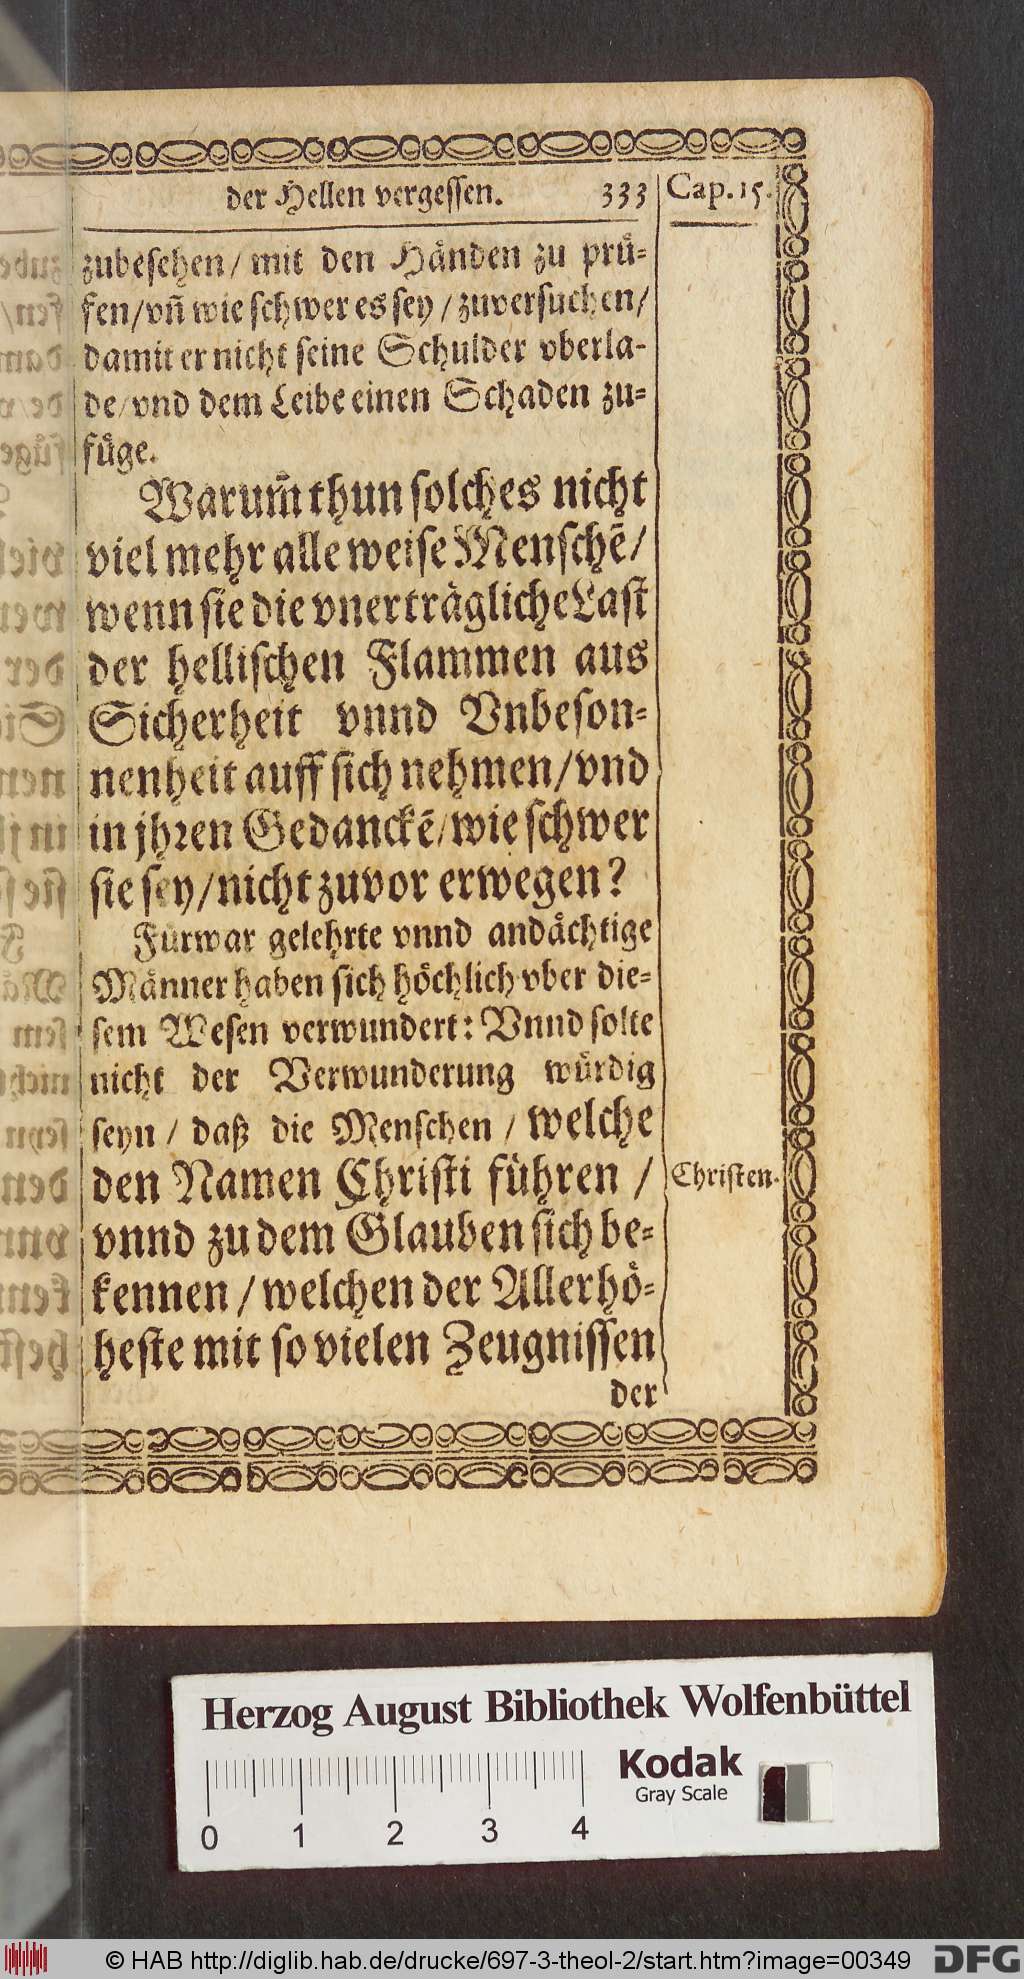 der Hellen vergessen. 333 Cap. 15.
zubesehen/ mit den Händen zu prü-
fen/vñ wie schwer es sey/zuversuchen/
damit er nicht seine Schulder vberla-
de/vnd dem Leibe einen Schaden zu-
füge.
Warum̃ thun solches nicht
viel mehr alle weise Menschẽ/
wenn sie die vnerträgliche Last
der hellischen Flammen aus
Sicherheit vnnd Vnbeson-
nenheit auff sich nehmen/vnd
in jhren Gedanckẽ/wie schwer
sie sey/nicht zuvor erwegen?
Fürwar gelehrte vnnd andächtige
Männer haben sich höchlich vber die-
sem Wesen verwundert: Vnnd solte
nicht der Verwunderung würdig
seyn/ daß die Menschen/ welche
den Namen Christi führen/ Christen.
vnnd zu dem Glauben sich be-
kennen/welchen der Allerhö-
heste mit so vielen Zeugnissen
der
Herzog August Bibliothek Wolfenbüttel
Kodak
Gray Scale
0 1 2 3 4
© HAB http://diglib.hab.de/drucke/697-3-theol-2/start.htm?image=00349 DFG